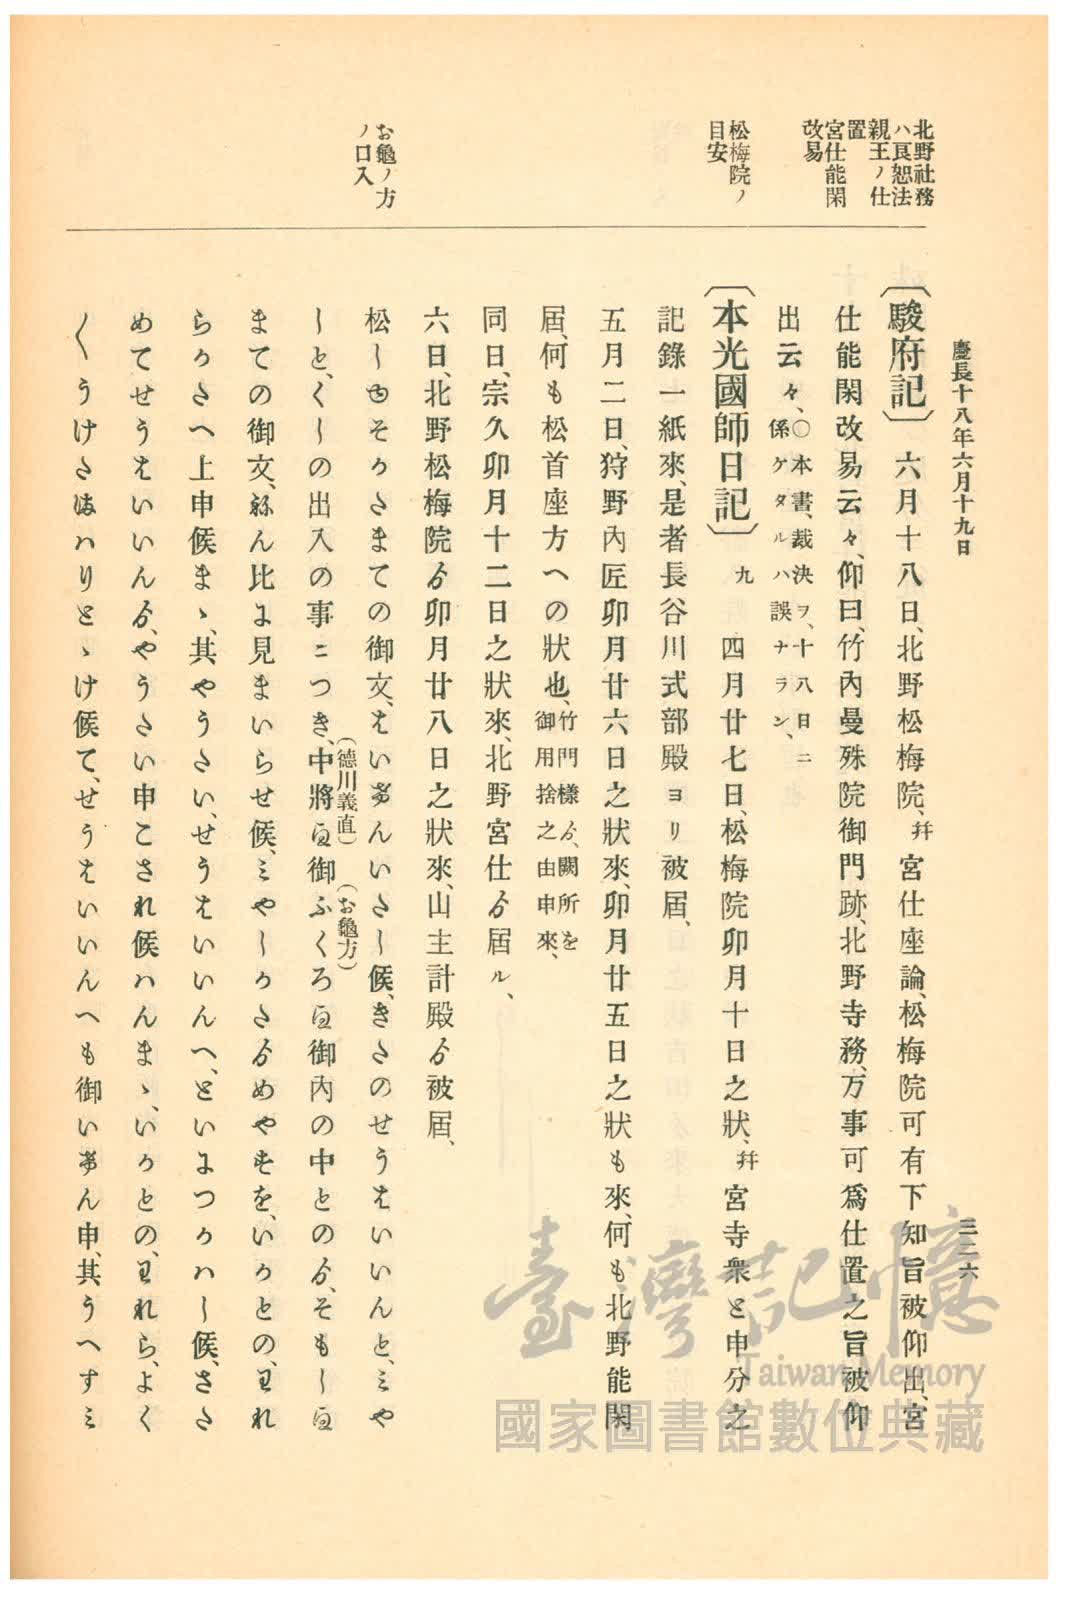 慶長十八年六月十九日
三二六
北野社務
ハ良恕法
親王ノ仕
置
宮仕能閑
改易
松梅院ノ
目安
お龜ノ方
ノ口入
〔駿府記〕六月十八日、北野松梅院、幷宮仕座論、松梅院可有下知旨被仰出、宮
仕能閑改易云々、仰曰、竹內曼殊院御門跡、北野寺務、万事可爲仕置之旨被仰
出云々、〇本書、裁決ヲ、十八日ニ
係ケタルハ誤ナラン、
〔本光國師日記〕九 四月廿七日、松梅院卯月十日之狀、幷宮寺衆と申分之
記錄一紙來、是者長谷川式部殿ヨリ被屆、
五月二日、狩野內匠卯月廿六日之狀來、卯月廿五日之狀も來、何も北野能閑
屆、何も松首座方への狀也、竹門樣ゟ、闕所を
御用捨之由申來、
同日、宗久卯月十二日之狀來、北野宮仕ゟ屆ル、
六日、北野松梅院ゟ卯月廿八日之狀來、山主計殿ゟ被屆、
松しゆそかさまての御文、はいけんいたし候、きたのせうはいいんと、ミや
しと、くしの出入の事ニつき、中將(德川義直)ゟ御ふくろ(お龜方)ゟ御內の中とのゟ、そもしゟ
まての御文、らん比ニ見まいらせ候、ミやしかたゟめやすを、いかとの、われ
らかたへ上申候まゝ、其やうたい、せうはいいんへ、といニつかハし候、さた
めてせうはいいんゟ、やうたい申こされ候ハんまゝ、いかとの、われら、よく
〱うけたまハりとゝけ候て、せうはいいんへも御いけん申、其うへすミ
臺灣記憶
Taiwan Memory
國家圖書館數位典藏